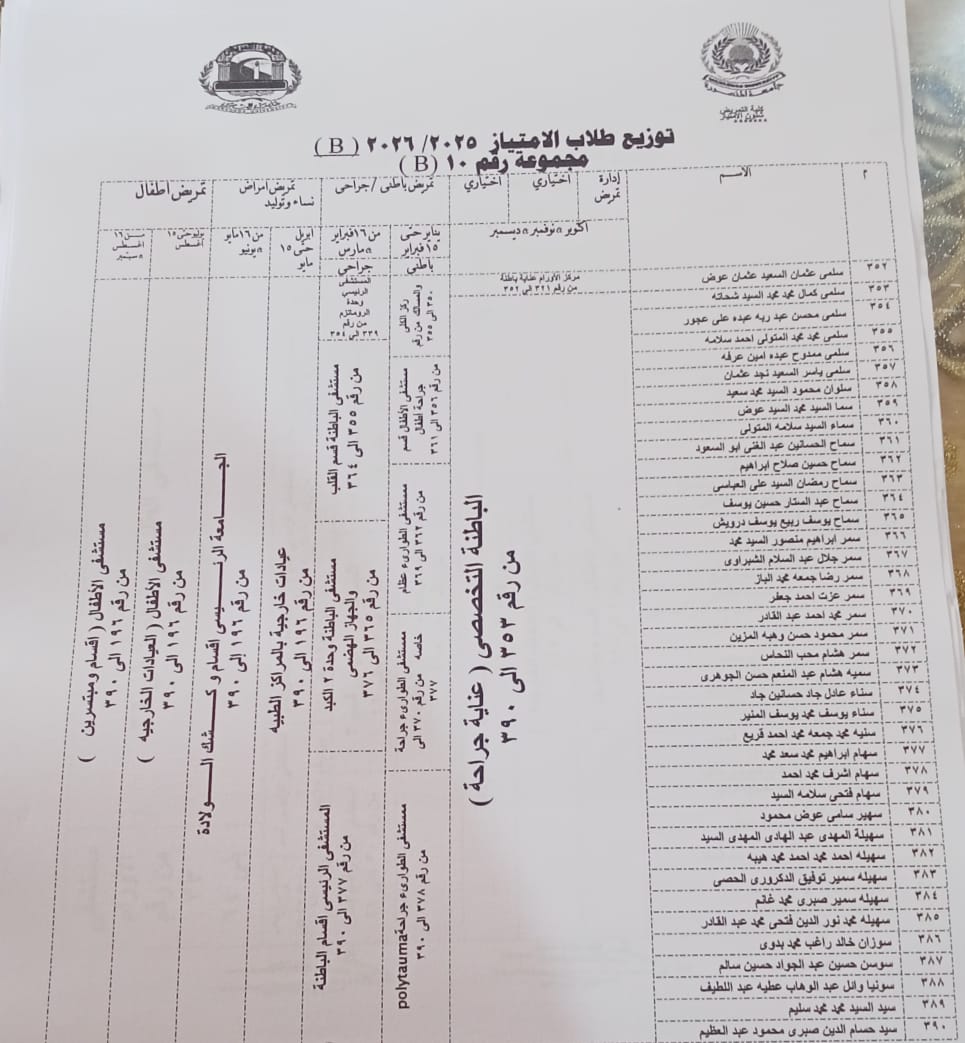 جامعة المنصورة
كلية التمريض
شئون الامتياز
توزيع طلاب الامتياز ٢٠٢٥/٢٠٢٦ ( B )
مجموعة رقم ١٠ ( B )
م
الاسم
إدارة تمريض
اختياري
اختياري
تمريض باطنى / جراحى
تمريض امراض نساء وتوليد
تمريض اطفال
اكتوبر n نوفمبر n ديسمبر
يناير حتى ١٥ فبراير
من ١٦ فبراير n مارس
ابريل حتى ١٥ مايو
من ١٦ مايو n يونيو
يوليو حتى ١٥ اغسطس
من ١٦ اغسطس n سبتمبر
باطنى
جراحى
مركز الأورام عناية باطنة
من رقم ٣٢١ الى ٣٥٢
الباطنة التخصصى ( عناية جراحة )
من رقم ٣٥٣ الى ٣٩٠
٣٥٠ الى ٣٥٥
مستشفى الأطفال قسم جراحة اطفال
من رقم ٣٥٦ الى ٣٦١
مستشفى الطوارىء عظام
من رقم ٣٦٢ الى ٣٦٩
مستشفى الطوارىء جراحة خاصه من رقم ٣٧٠ الى ٣٧٧
مستشفى الطوارىء جراحة polytauma
من رقم ٣٧٨ الى ٣٩٠
المستشفى الرئيسي وحدة الروماتزم من رقم ٣٣٩ الى ٣٥٤
مستشفى الباطنة قسم القلب
من رقم ٣٥٥ الى ٣٦٤
مستشفى الباطنة وحدة ٢ الكبد والجهاز الهضمى
من رقم ٣٦٥ الى ٣٧٦
المستشفى الرئيسى اقسام الباطنة
من رقم ٣٧٧ الى ٣٩٠
عيادات خارجية بالمراكز الطبيه
من رقم ١٩٦ الى ٣٩٠
الجامعة الرئيسى اقسام و كشك الولادة
من رقم ١٩٦ إلى ٣٩٠
مستشفى الأطفال ( العيادات الخارجيه )
من رقم ١٩٦ الى ٣٩٠
مستشفى الأطفال ( اقسام ومبتسرين )
من رقم ١٩٦ الى ٣٩٠
٣٥٢ سلمى عثمان السعيد عثمان عوض
٣٥٣ سلمى كمال محمد محمد السيد شحاته
٣٥٤ سلمى محسن عبد ربه عبده على عجور
٣٥٥ سلمى محمد محمد المتولى احمد سلامه
٣٥٦ سلمى ممدوح عبده امين عرفه
٣٥٧ سلمى ياسر السعيد نجد عثمان
٣٥٨ سلوان محمود السيد محمد سعيد
٣٥٩ سما السيد محمد السيد عوض
٣٦٠ سماء السيد سلامه المتولى
٣٦١ سماح الحسانين عبد الغنى ابو السعود
٣٦٢ سماح حسين صلاح ابراهيم
٣٦٣ سماح رمضان السيد على العباسى
٣٦٤ سماح عبد الستار حسين يوسف
٣٦٥ سماح يوسف ربيع يوسف درويش
٣٦٦ سمر ابراهيم منصور السيد محمد
٣٦٧ سمر جلال عبد السلام الشبراوى
٣٦٨ سمر رضا جمعه محمد الباز
٣٦٩ سمر عزت احمد جعفر
٣٧٠ سمر محمد احمد عبد القادر
٣٧١ سمر محمود حسن وهبه المزين
٣٧٢ سمر هشام محب النحاس
٣٧٣ سميه هشام عبد المنعم حسن الجوهرى
٣٧٤ سناء عادل جاد حسانين جاد
٣٧٥ سناء يوسف محمد يوسف المنير
٣٧٦ سنيه محمد جمعه محمد احمد قريع
٣٧٧ سهام ابراهيم محمد سعد محمد
٣٧٨ سهام اشرف محمد احمد
٣٧٩ سهام فتحى سلامه السيد
٣٨٠ سهير سامى عوض محمود
٣٨١ سهيلة المهدى عبد الهادى المهدى السيد
٣٨٢ سهيله احمد محمد احمد محمد هيبه
٣٨٣ سهيله سمير توفيق الدكرورى الحصى
٣٨٤ سهيله سمير صبرى محمد غانم
٣٨٥ سهيله محمد نور الدين فتحى محمد عبد القادر
٣٨٦ سوزان خالد راغب محمد بدوى
٣٨٧ سوسن حسين عبد الجواد حسين سالم
٣٨٨ سونيا وائل عبد الوهاب عطيه عبد اللطيف
٣٨٩ سيد السيد محمد محمد سليم
٣٩٠ سيد حسام الدين صبرى محمود عبد العظيم